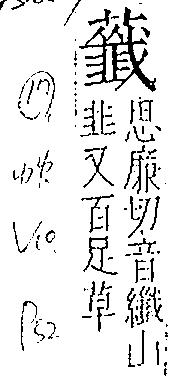 虃
思廉切音纖山
韭又百足草
17
V10
P52